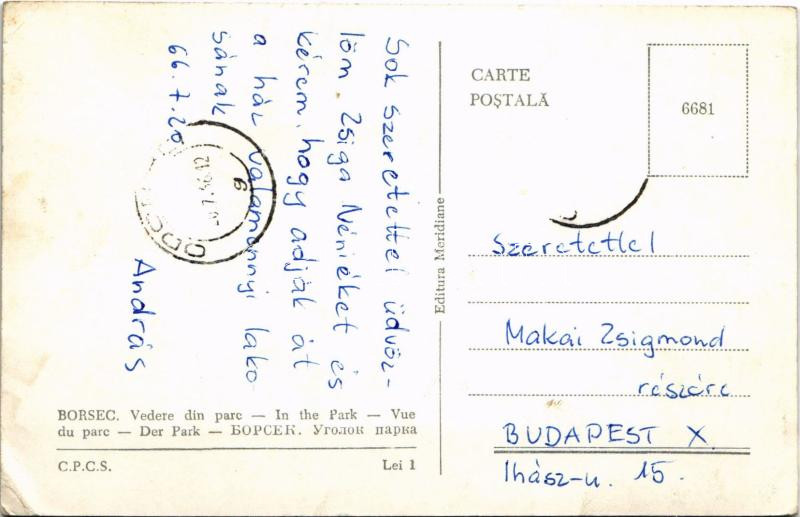 Sok szeretettel üdvöz-
löm Zsiga Néniéket és
kérem, hogy adják át
a ház valamennyi lakó
sának
66.7.20
András
BORSEC. Vedere din parc — In the Park — Vue
du parc — Der Park — БОРСЕК. Уголок парка
C.P.C.S. Lei 1
Editura Meridiane
CARTE
POȘTALĂ
6681
Szeretettel
Makai Zsigmond
részére
BUDAPEST X.
Ihász-u. 15.